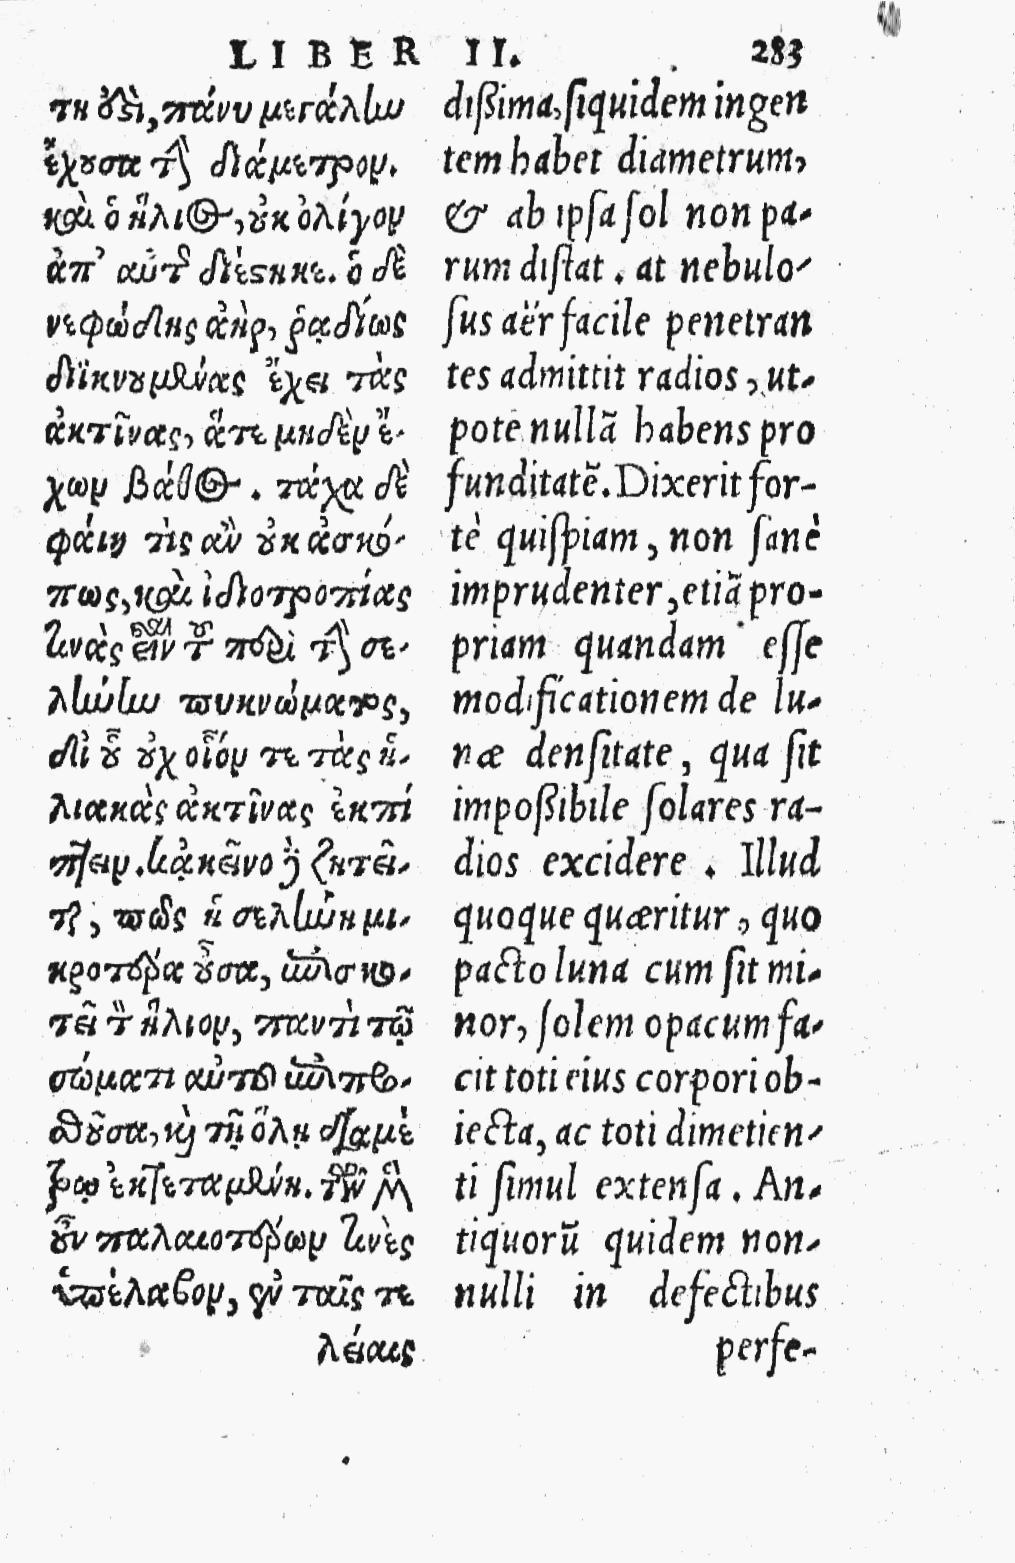 LIBER II. 283
τη ἐστὶ, πάνυ μεγάλην
ἔχουσα τὴν διάμετρον.
καὶ ὁ ἥλιος, οὐκ ὀλίγον
ἀπ' αὐτῆς διέστηκε. ὁ δὲ
νεφώδης ἀὴρ, ῥᾳδίως
διϊκνουμένας ἔχει τὰς
ἀκτῖνας, ἅτε μηδὲν ἔ-
χων βάθος. τάχα δὲ
φαίη τὶς ἂν οὐκ ἀσκό-
πως, καὶ ἰδιοτροπίας
τινὰς εἶναι τοῦ περὶ τὴν σε-
λήνην πυκνώματος,
δι' οὗ οὐχ οἷόν τε τὰς ἡ-
λιακὰς ἀκτῖνας ἐκπί
πτειν. κἀκεῖνο δὲ ζητεῖ-
ται, πῶς ἡ σελήνη μι-
κροτέρα οὖσα, ἐπισκο-
τεῖ τὸν ἥλιον, παντὶ τῷ
σώματι αὐτοῦ ἐπιπρο-
σθοῦσα, καὶ τῇ ὅλῃ διαμέ
τρῳ ἐκτεταμένη. τῶν μὲν
οὖν παλαιοτέρων τινὲς
ὑπέλαβον, ἐν ταῖς τε
λείαις
dißima, ſiquidem ingen
tem habet diametrum,
& ab ipſa ſol non pa-
rum diſtat. at nebulo-
ſus aër facile penetran
tes admittit radios, ut-
pote nullã habens pro
funditatẽ. Dixerit for-
tè quiſpiam, non ſanè
imprudenter, etiã pro-
priam quandam eſſe
modificationem de lu-
næ denſitate, qua ſit
impoßibile ſolares ra-
dios excidere. Illud
quoque quæritur, quo
pacto luna cum ſit mi-
nor, ſolem opacum fa-
cit toti eius corpori ob-
iecta, ac toti dimetien-
ti ſimul extenſa. An-
tiquorũ quidem non-
nulli in defectibus
perfe-